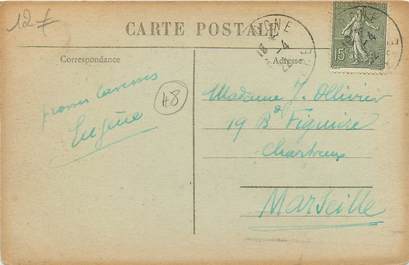 12 F
CARTE POSTALE
Correspondance
Adresse
IGNE
15
48
Eugène
Madame J. Ollivier
19 Bd Figuière
Chartreux
Marseille